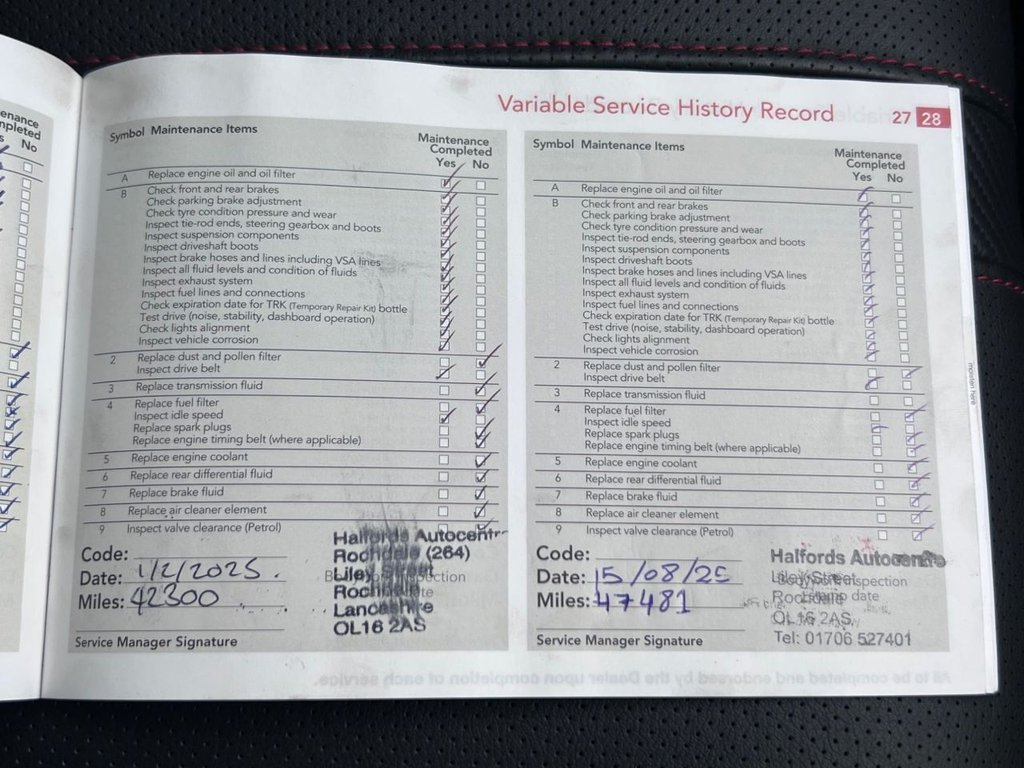 enance
mpleted
s No
Variable Service History Record 27 28
Symbol Maintenance Items
Maintenance
Completed
Yes No
A Replace engine oil and oil filter
B Check front and rear brakes
Check parking brake adjustment
Check tyre condition pressure and wear
Inspect tie-rod ends, steering gearbox and boots
Inspect suspension components
Inspect driveshaft boots
Inspect brake hoses and lines including VSA lines
Inspect all fluid levels and condition of fluids
Inspect exhaust system
Inspect fuel lines and connections
Check expiration date for TRK (Temporary Repair Kit) bottle
Test drive (noise, stability, dashboard operation)
Check lights alignment
Inspect vehicle corrosion
2 Replace dust and pollen filter
Inspect drive belt
3 Replace transmission fluid
4 Replace fuel filter
Inspect idle speed
Replace spark plugs
Replace engine timing belt (where applicable)
5 Replace engine coolant
6 Replace rear differential fluid
7 Replace brake fluid
8 Replace air cleaner element
9 Inspect valve clearance (Petrol)
Code:
Date: 1/2/2025.
Miles: 42300
Service Manager Signature
Halfords Autocentr
Rochdale (264)
Liley Street
Rochdale
Lancashire
OL16 2AS
Symbol Maintenance Items
Maintenance
Completed
Yes No
A Replace engine oil and oil filter
B Check front and rear brakes
Check parking brake adjustment
Check tyre condition pressure and wear
Inspect tie-rod ends, steering gearbox and boots
Inspect suspension components
Inspect driveshaft boots
Inspect brake hoses and lines including VSA lines
Inspect all fluid levels and condition of fluids
Inspect exhaust system
Inspect fuel lines and connections
Check expiration date for TRK (Temporary Repair Kit) bottle
Test drive (noise, stability, dashboard operation)
Check lights alignment
Inspect vehicle corrosion
2 Replace dust and pollen filter
Inspect drive belt
3 Replace transmission fluid
4 Replace fuel filter
Inspect idle speed
Replace spark plugs
Replace engine timing belt (where applicable)
5 Replace engine coolant
6 Replace rear differential fluid
7 Replace brake fluid
8 Replace air cleaner element
9 Inspect valve clearance (Petrol)
Code:
Date: 15/08/25
Miles: 47481
Service Manager Signature
Halfords Autocentre
Liley Street
Rochdale
OL16 2AS
Tel: 01706 527401
moisten here